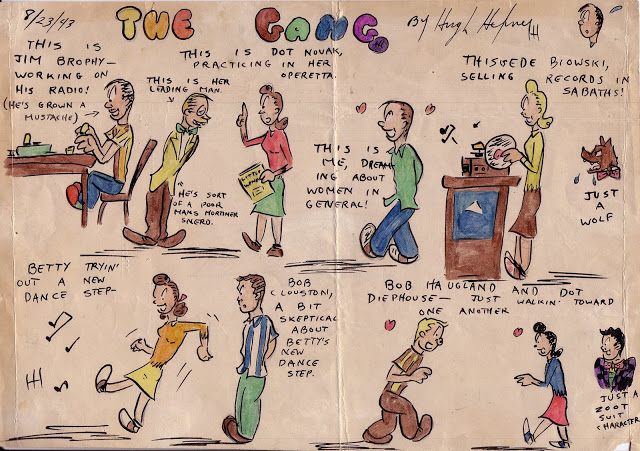 8/23/43
THE GANG
By Hugh Hefner
HH
THIS IS
JIM BROPHY—
WORKING ON
HIS RADIO!
(HE'S GROWN A
MUSTACHE)
THIS IS HER
LEADING MAN.
HE'S SORT
OF A POOR
MANS MORTIMER
SNERD.
THIS IS DOT NOVAK,
PRACTICING IN HER
OPERETTA.
THIS IS
ME, DREAM-
ING ABOUT
WOMEN IN
GENERAL!
THIS EDE BIOWSKI,
SELLING RECORDS IN
SABATHS!
JUST
A
WOLF
BETTY TRYIN'
OUT A NEW
DANCE STEP—
HH
BOB
CLOUSTON,
A BIT
SKEPTICAL
ABOUT
BETTY'S
NEW
DANCE
STEP.
BOB HAUGLAND AND DOT
DIEPHOUSE— JUST WALKIN' TOWARD
ONE ANOTHER
JUST A
ZOOT
SUIT
CHARACTER